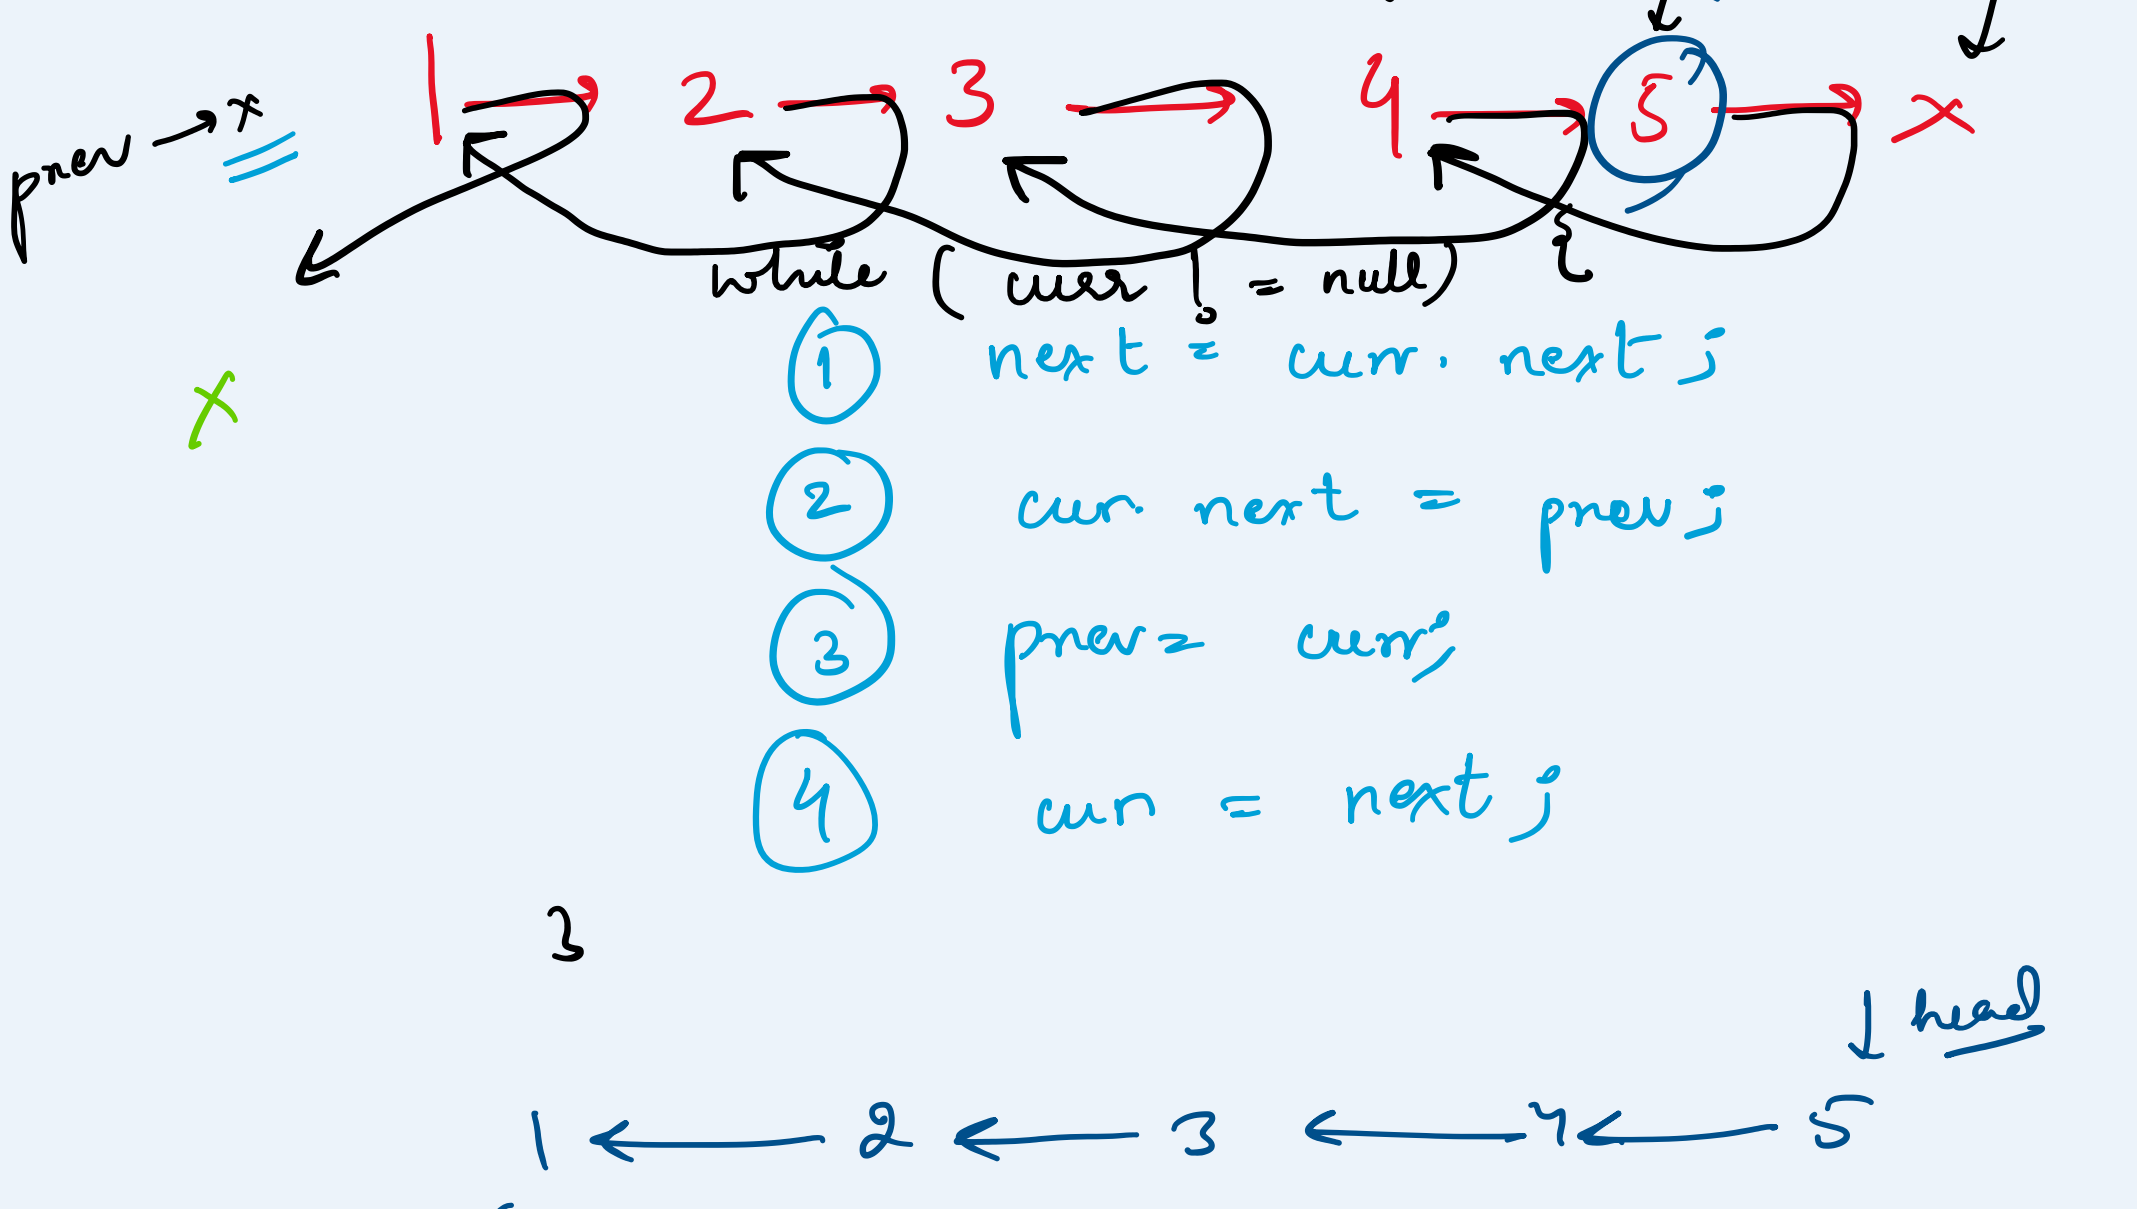 1 → 2 → 3 → 4 → 5 → x
prev → x
while (curr != null) {
x
1 next = curr. next ;
2 curr. next = prev ;
3 prev = curr;
4 curr = next ;
}
↓ head
1 ← 2 ← 3 ← 4 ← 5